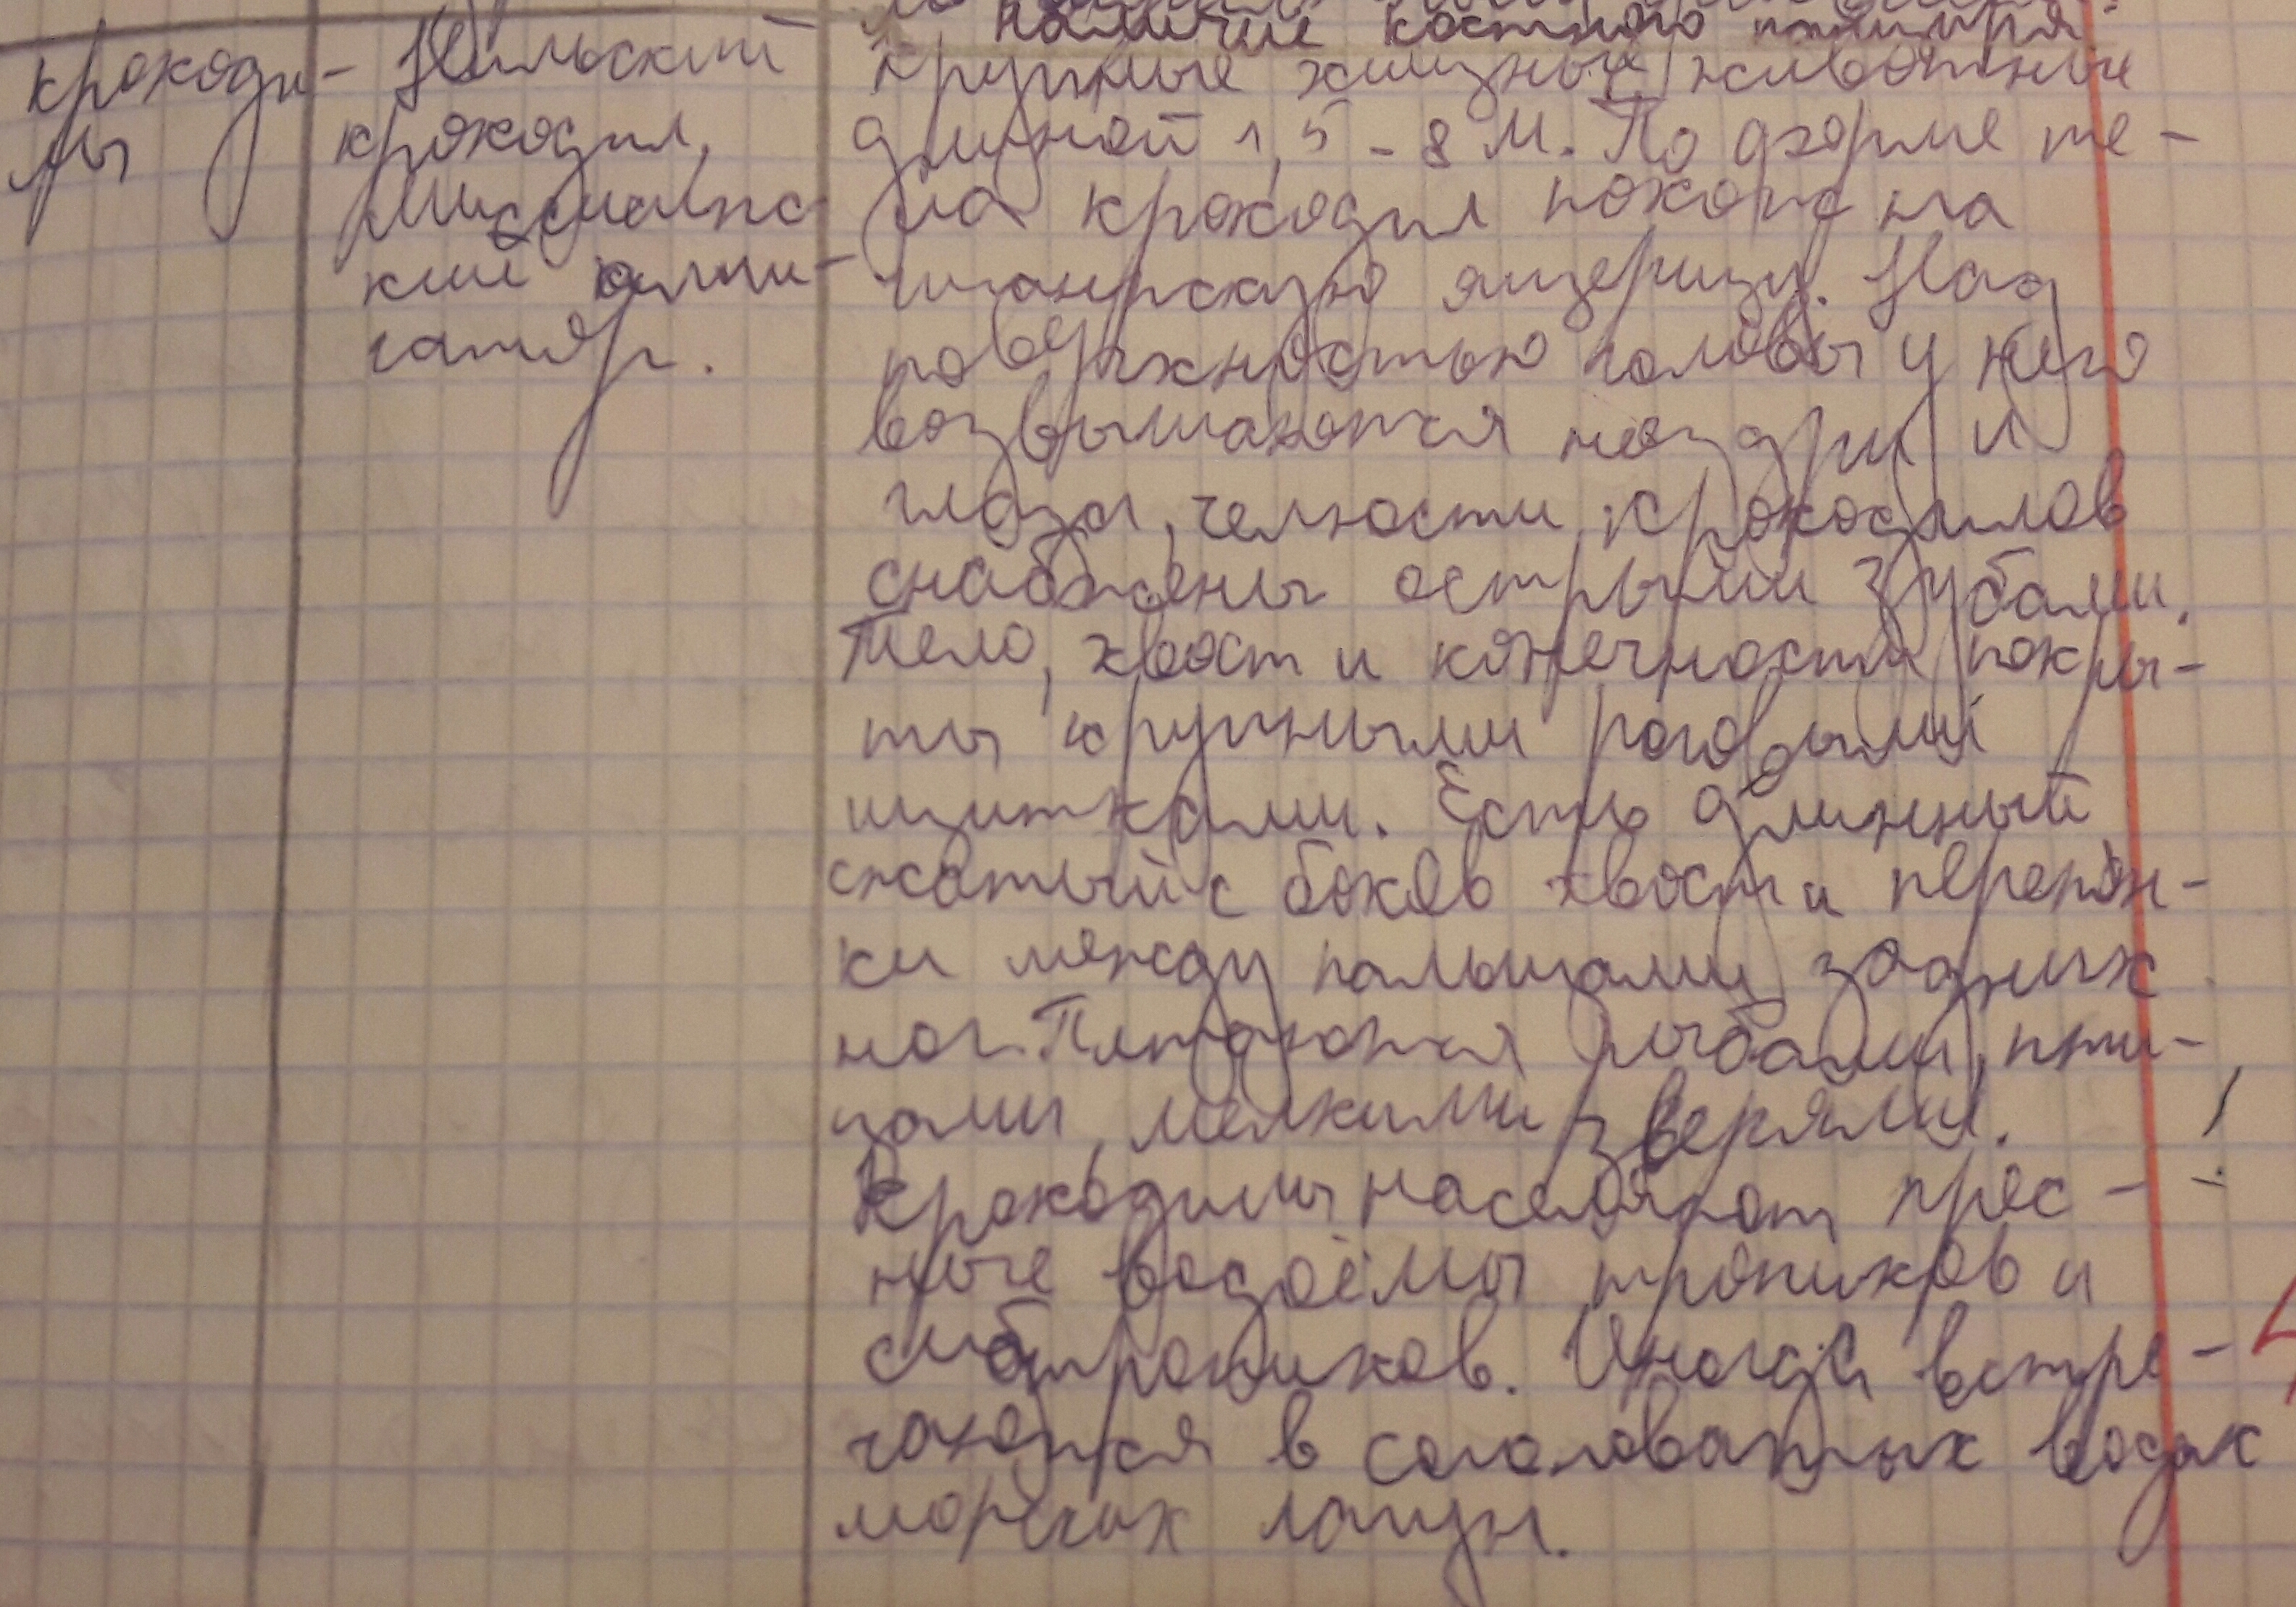 наличие костного панциря
крокоди-
лы
Нильский
крокодил,
Миссисипс
кий алли-
гатор.
крупные хищные животные
длиной 1,5 - 8 м. По форме те-
ла крокодил похож на
гигантскую ящерицу. Над
поверхностью головы у него
возвышаются ноздри и
глаза, челюсти крокодилов
снабжены острыми зубами.
Тело, хвост и конечности покры-
ты крупными роговыми
щитками. Есть длинный
сжатый с боков хвост и перепон-
ки между пальцами задних
ног. Питаются рыбами, пти-
цами, мелкими зверями.
Крокодилы населяют прес-
ные водоёмы тропиков и
субтропиков. Иногда встре-
чаются в солоноватых водах
морских лагун.